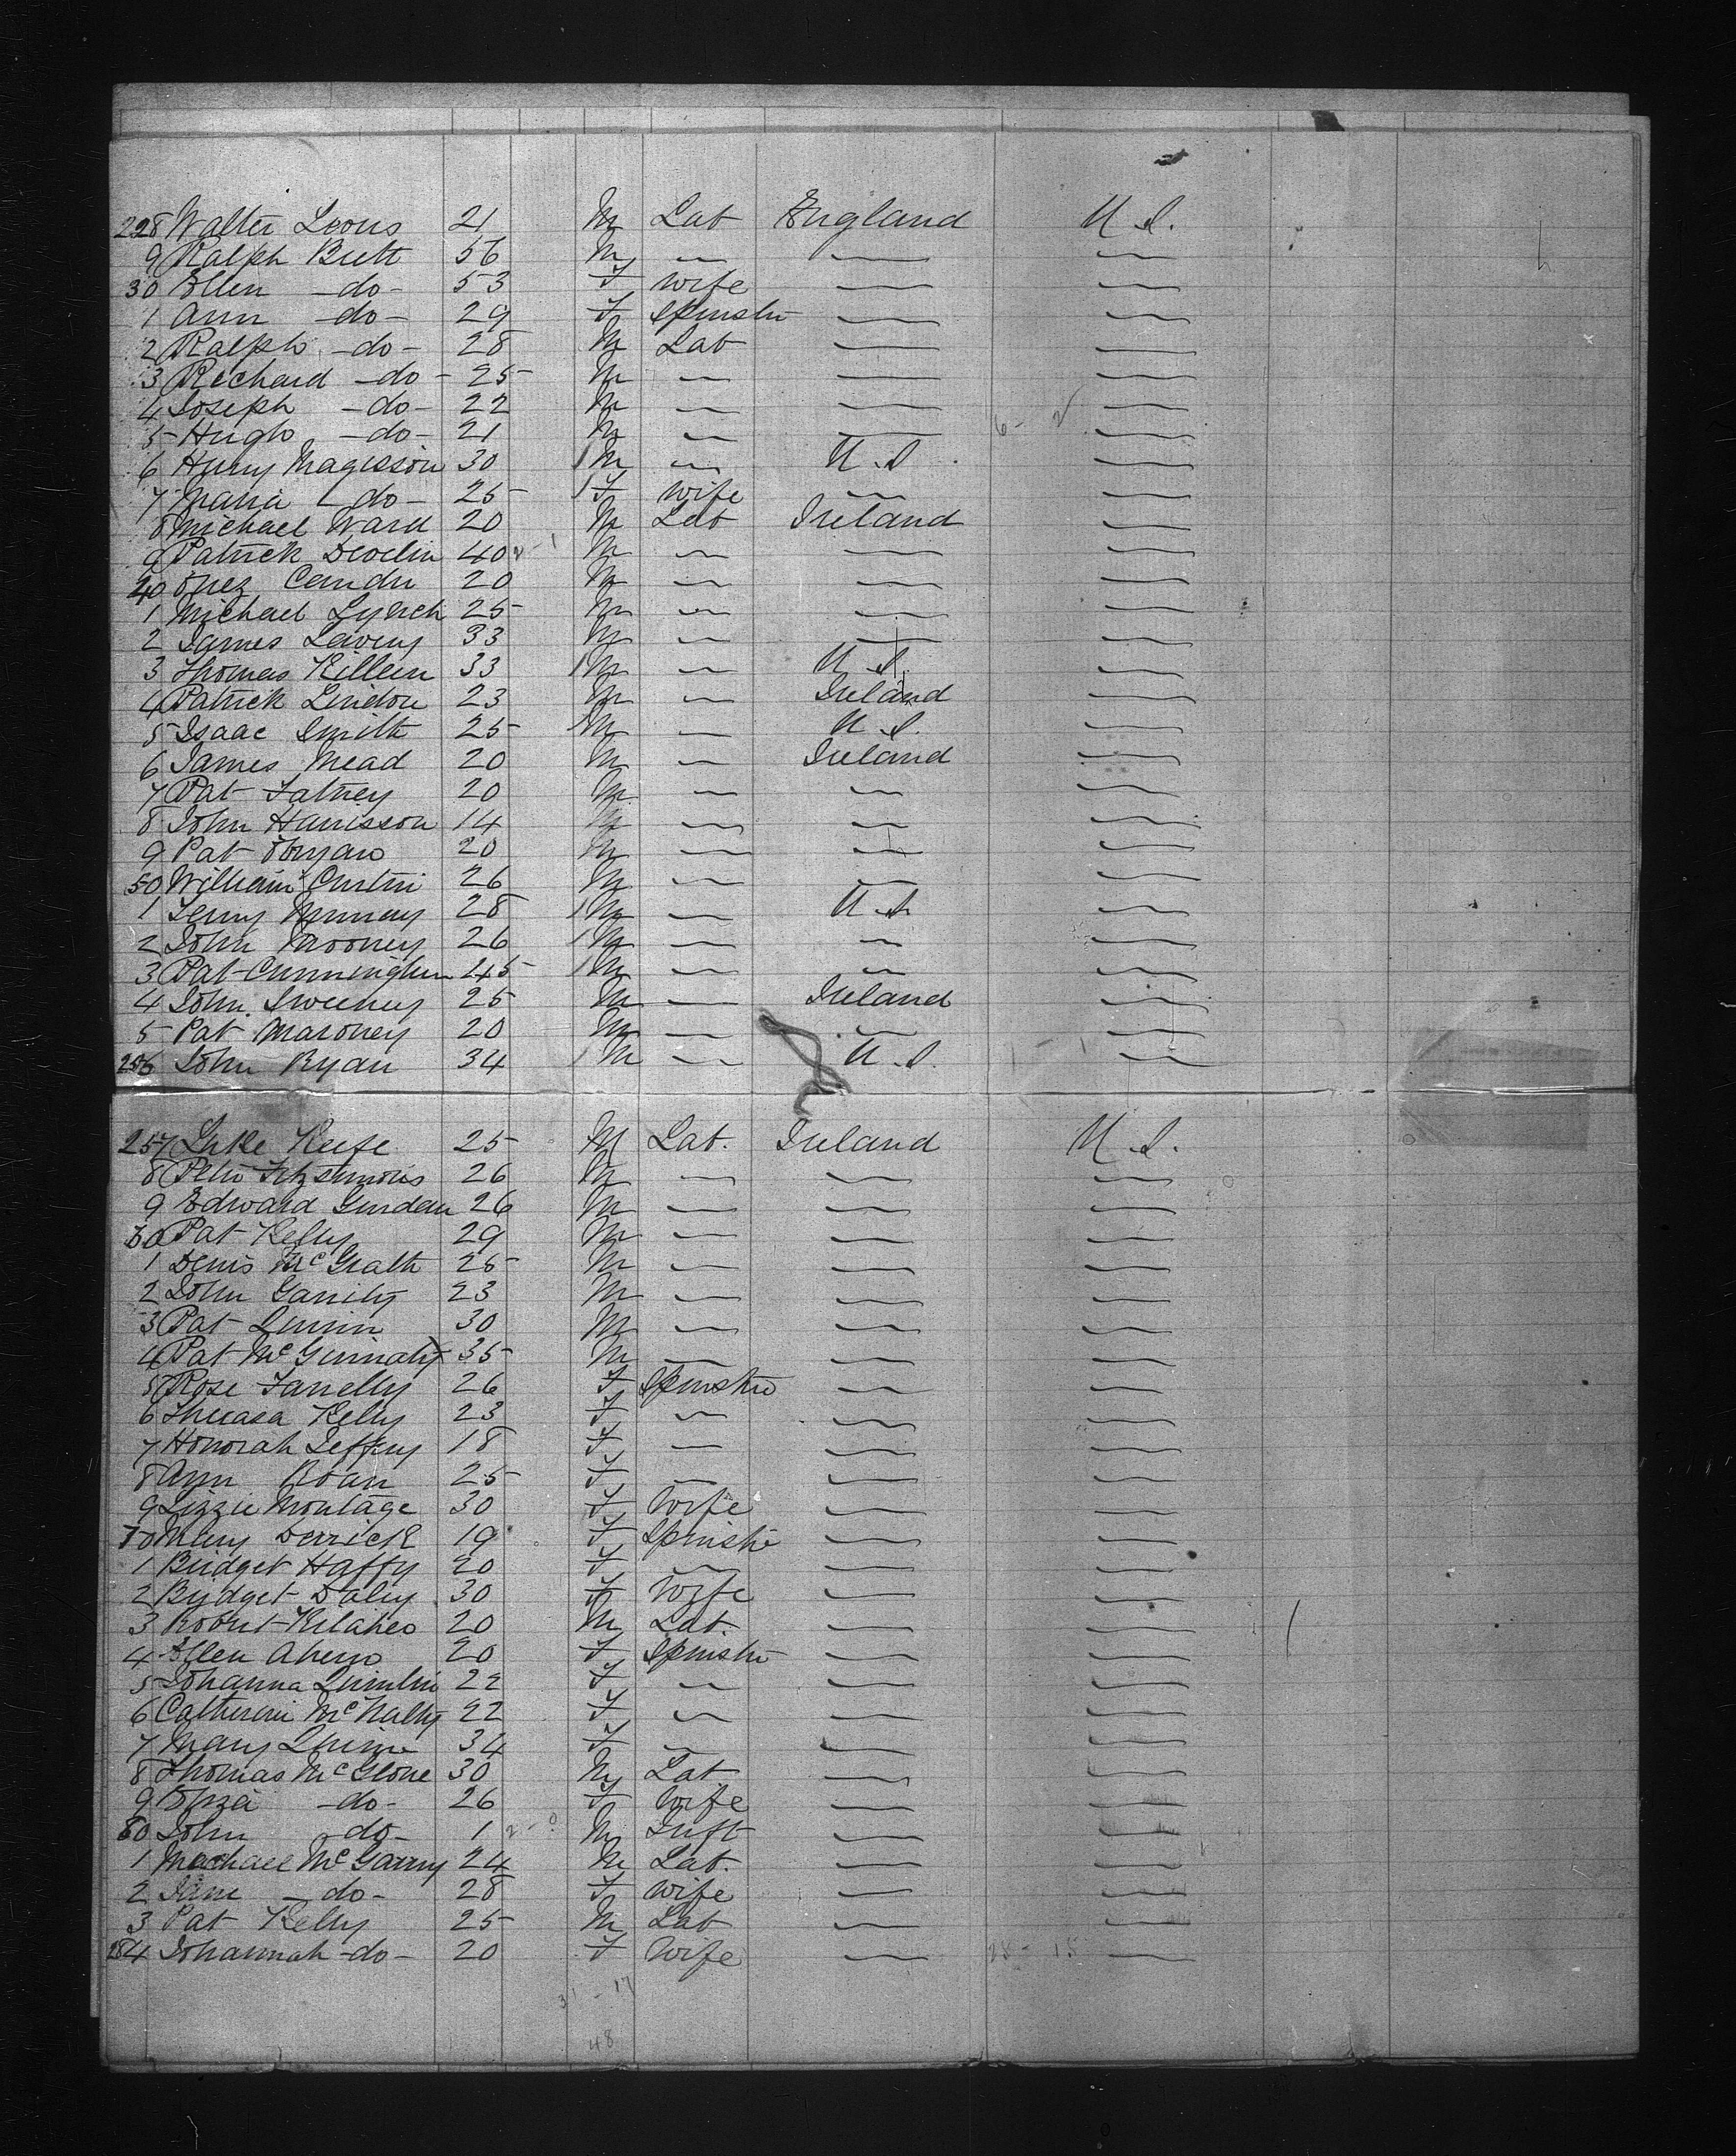 228 Walter Leons 21 M Lab England U.S.
9 Ralph Brett 56 M — — —
30 Ellen -do- 53 F Wife — —
1 Ann -do- 29 F Spinstr — —
2 Ralph -do- 28 M Lab — —
3 Richard -do- 25 M — — —
4 Joseph -do- 22 M — — —
5 Hugh -do- 21 M — — —
6 Harry Magisson 30 M — U.S. —
7 Maria -do- 25 F Wife — —
8 Michael Ward 20 M Lab Ireland —
9 Patrick Devlin 40 M — — —
40 20 M — — —
1 Michael Lynch 25 M — — —
2 James Lavery 33 M — — —
3 Thomas Killeen 33 M — U.S. —
4 Patrick Lindon 23 M — Ireland —
5 Isaac Smith 25 M — U.S. —
6 James Mead 20 M — Ireland —
7 Pat 20 M — — —
8 John Harrisson 14 M — — —
9 Pat 20 M — — —
50 William 26 M — — —
1 Murray 28 M — U.S. —
2 John Mooney 26 M — — —
3 Pat Cunningham 45 M — — —
4 John Sweeney 25 M — Ireland —
5 Pat Maroney 20 M — — —
256 John Ryan 34 M — U.S. —
257 Luke Keefe 25 M Lab. Ireland U.S.
8 Peter Fitzsimons 26 M — — —
9 Edward 26 M — — —
60 Pat Kelly 29 M — — —
1 Denis McGrath 25 M — — —
2 John Garrity 23 M — — —
3 Pat Quinn 30 M — — —
4 Pat 35 M — — —
5 Rose Farrelly 26 F Spinstr — —
6 Kelly 23 F — — —
7 Honorah Jeffrey 18 F — — —
8 Ann Roan 25 F — — —
9 Lizzie Montage 30 F Wife — —
70 Mary Derrick 19 F Spinstr — —
1 Bridget Haffy 20 F — — —
2 Bydget Daley 30 F Wife — —
3 Robert 20 M Lab. — —
4 Ellen Ahern 20 F Spinstr — —
5 Johanna Quinlin 22 F — — —
6 Catherin McNally 22 F — — —
7 Mary 34 F — — —
8 Thomas McGlone 30 M Lab — —
9 Eliza -do- 26 F Wife — —
80 John -do- 1 M Inft — —
1 Michael McGarry 24 M Lab. — —
2 Jane -do- 28 F Wife — —
3 Pat Kelly 25 M Lab — —
284 Johannah -do- 20 F Wife — —
31 - 17
48